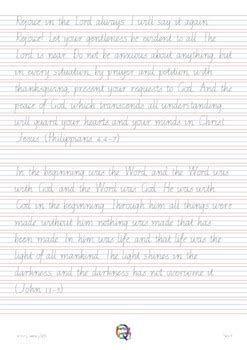 Rejoice in the Lord always. I will say it again:
Rejoice! Let your gentleness be evident to all. The
Lord is near. Do not be anxious about anything, but
in every situation, by prayer and petition, with
thanksgiving, present your requests to God. And the
peace of God, which transcends all understanding,
will guard your hearts and your minds in Christ
Jesus. (Philippians 4:4-7)
In the beginning was the Word, and the Word was
with God, and the Word was God. He was with
God in the beginning. Through him all things were
made; without him nothing was made that has
been made. In him was life, and that life was the
light of all mankind. The light shines in the
darkness, and the darkness has not overcome it.
(John 1:1-5)